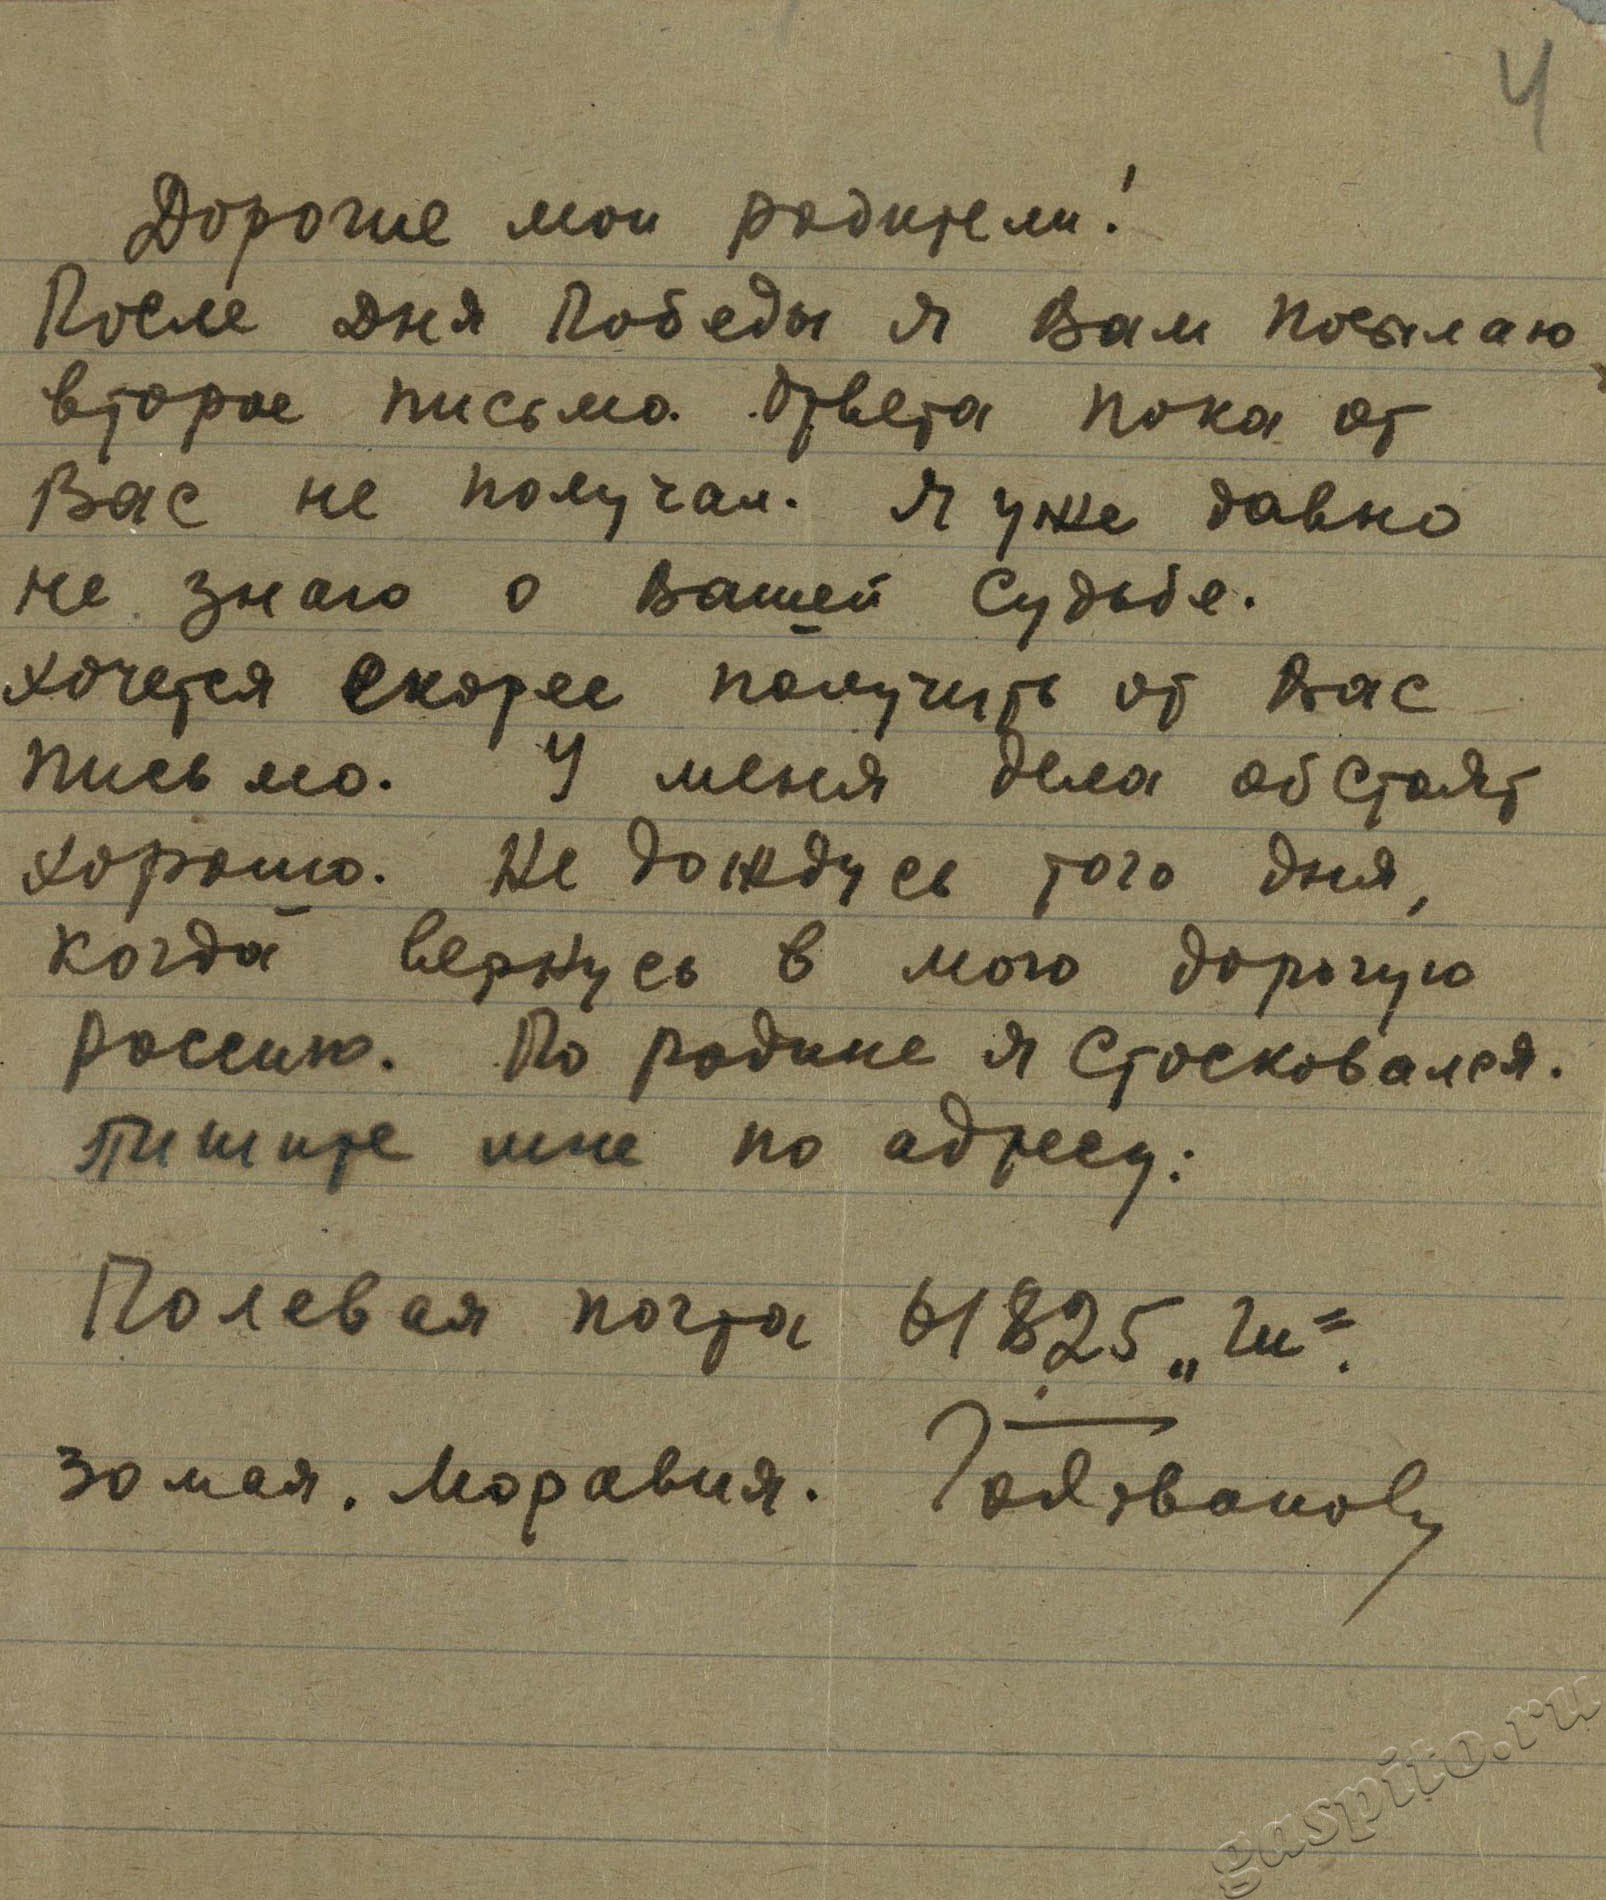 4
Дорогие мои родители!
После дня Победы я Вам посылаю
второе письмо. Ответа пока от
Вас не получал. Я уже давно
не знаю о Вашей судьбе.
Хочется скорее получить от Вас
письмо. У меня дела обстоят
хорошо. Не дождусь того дня,
когда вернусь в мою дорогую
Россию. По родине я стосковался.
Пишите мне по адресу:
Полевая почта 61825
30 мая. Моравия.
gaspito.ru